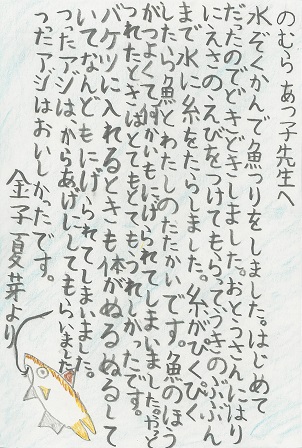 のむら あつ子先生へ
水ぞくかんで魚つりをしました。はじめて
だったのでどきどきしました。おとうさんにはり
にえさのえびをつけてもらってうきのぶぶん
まで水に糸をたらしました。糸がぴくぴく
したら魚とわたしのたたかいです。魚のほう
がつよくて何かいもにげられてしまいました。やっと
つれたときはとてもとてもうれしかったです。
バケツに入れるときも体がぬるぬるして
いてなんどもにげられてしまいました。
つったアジは、からあげにしてもらいました。
つったアジはおいしかったです。
金子夏芽より